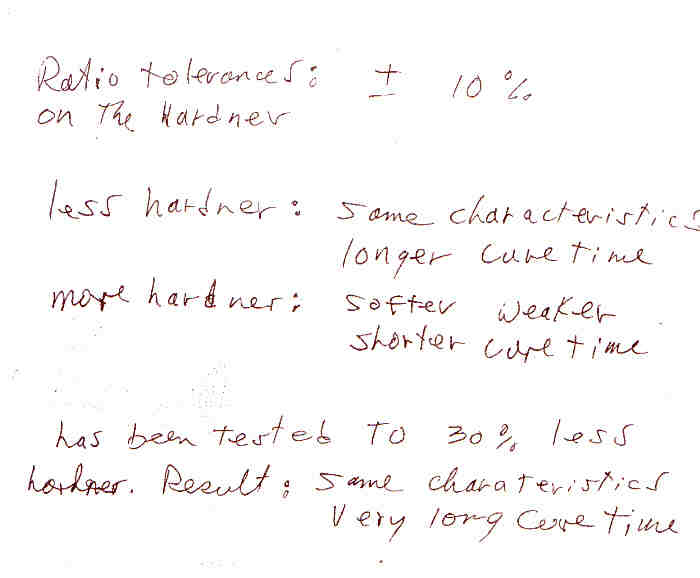 Ratio tolerances: ± 10%
on The Hardner
less hardner: same characteristics
longer cure time
more hardner: softer weaker
shorter cure time
has been tested TO 30% less
hardner. Result: same charateristics
Very long cure time